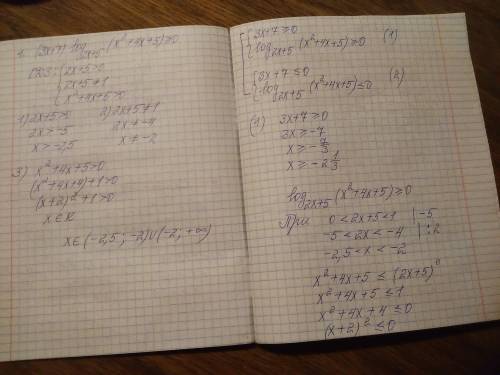 1. (3x+7) log₂ₓ₊₅ (x²+4x+5) ≥ 0
ОДЗ: { 2x+5>0
2x+5≠1
x²+4x+5>0
1) 2x+5>0 2) 2x+5≠1
2x>-5 2x≠-4
x>-2,5 x≠-2
3) x²+4x+5>0
(x²+4x+4)+1>0
(x+2)²+1>0
x∈R
x∈(-2,5; -2)∪(-2; +∞)
[ { 3x+7≥0
log₂ₓ₊₅ (x²+4x+5)≥0 (1)
{ 3x+7≤0
log₂ₓ₊₅ (x²+4x+5)≤0 (2)
(1) 3x+7≥0
3x≥-7
x≥-7/3
x≥-2 1/3
log₂ₓ₊₅ (x²+4x+5)≥0
При 0<2x+5<1 |-5
-5<2x<-4 |:2
-2,5<x<-2
x²+4x+5 ≤ (2x+5)⁰
x²+4x+5 ≤ 1
x²+4x+4 ≤ 0
(x+2)² ≤ 0